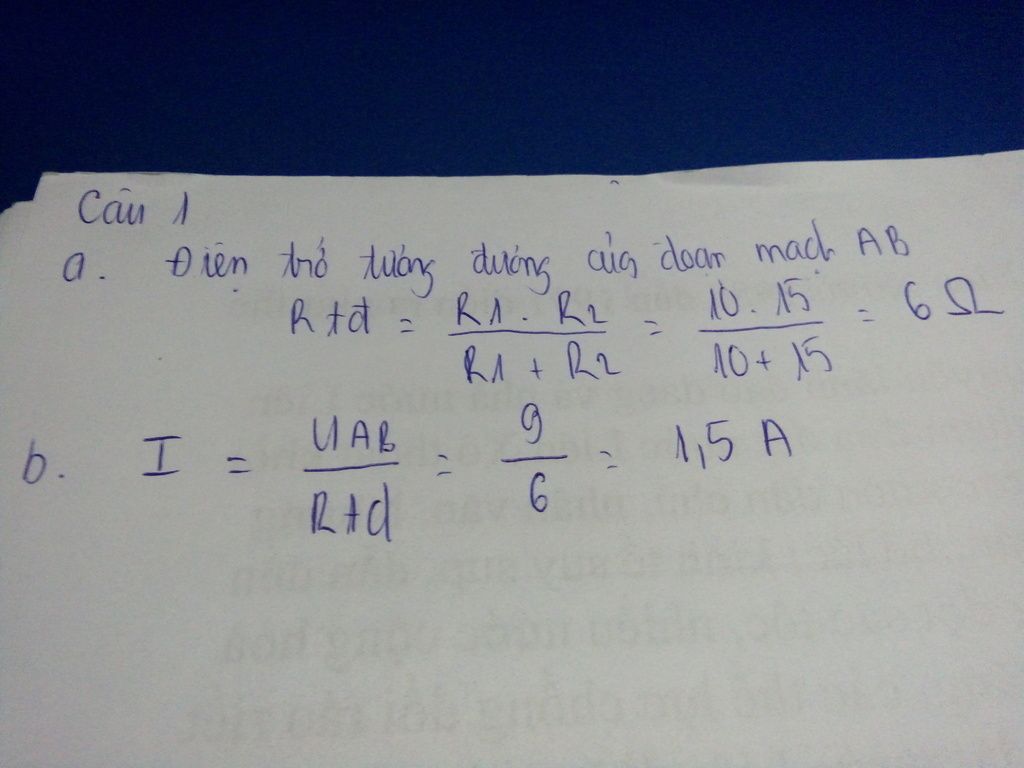 Câu 1
a. Điện trở tương đương của đoạn mạch AB
Rtđ = R1 . R2 / R1 + R2 = 10 . 15 / 10 + 15 = 6 Ω
b. I = UAB / Rtđ = 9 / 6 = 1,5 A